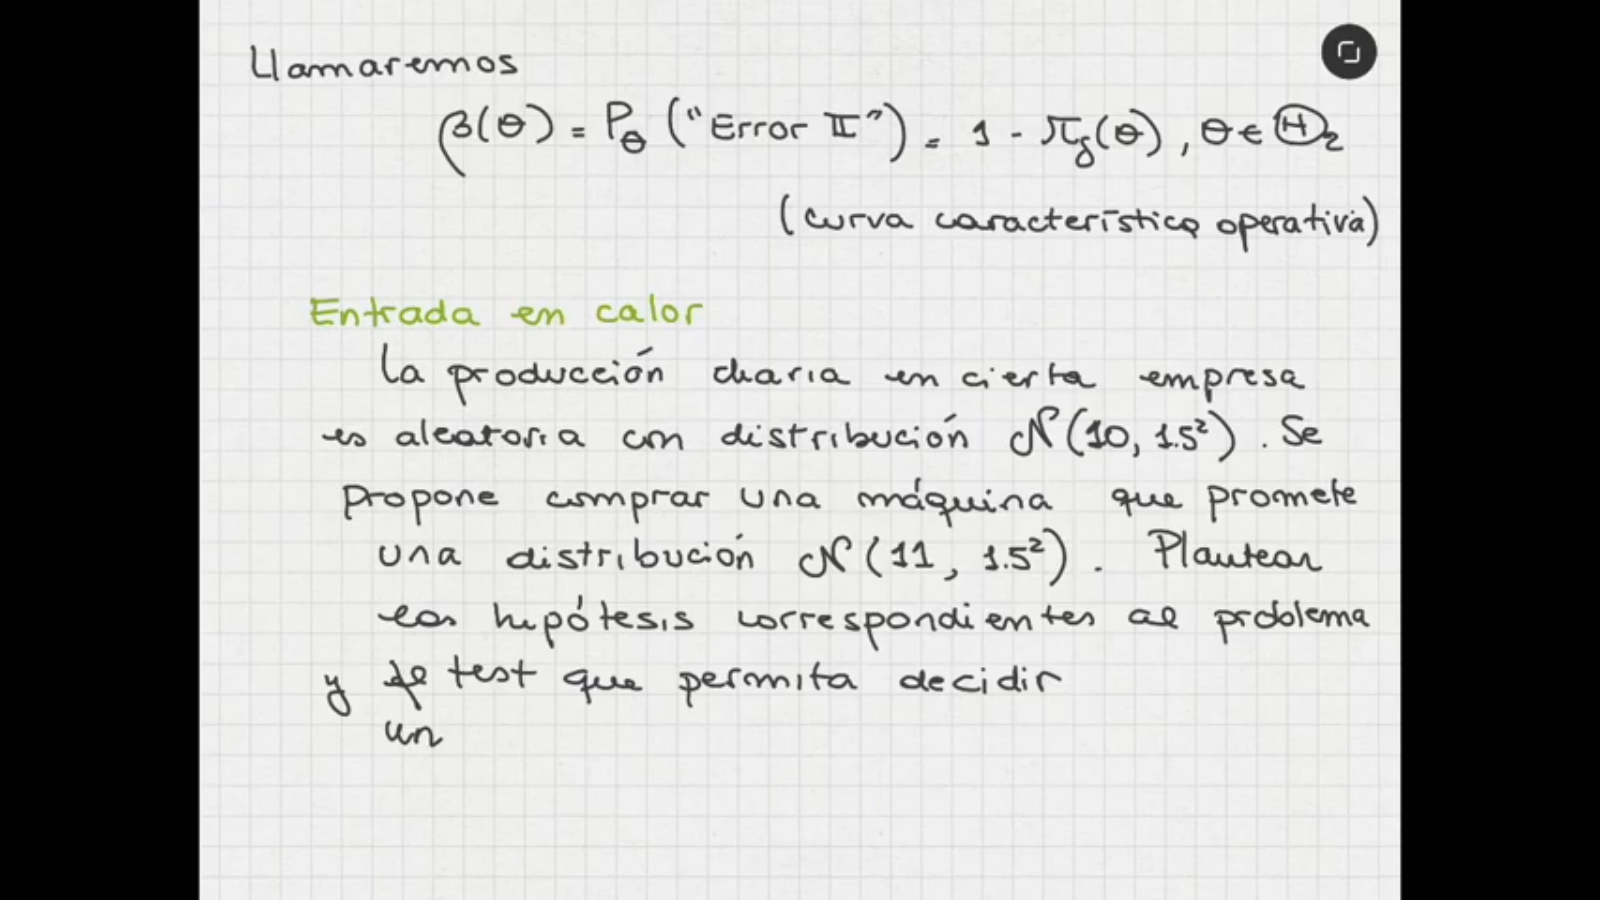 Llamaremos
β(θ) = P_θ ("Error II") = 1 - π_δ(θ), θ ∈ Θ_2
(curva característica operativa)
Entrada en calor
La producción diaria en cierta empresa
es aleatoria con distribución N(10, 1.5²). Se
propone comprar una máquina que promete
una distribución N(11, 1.5²). Plantear
las hipótesis correspondientes al problema
y test que permita decidir
un